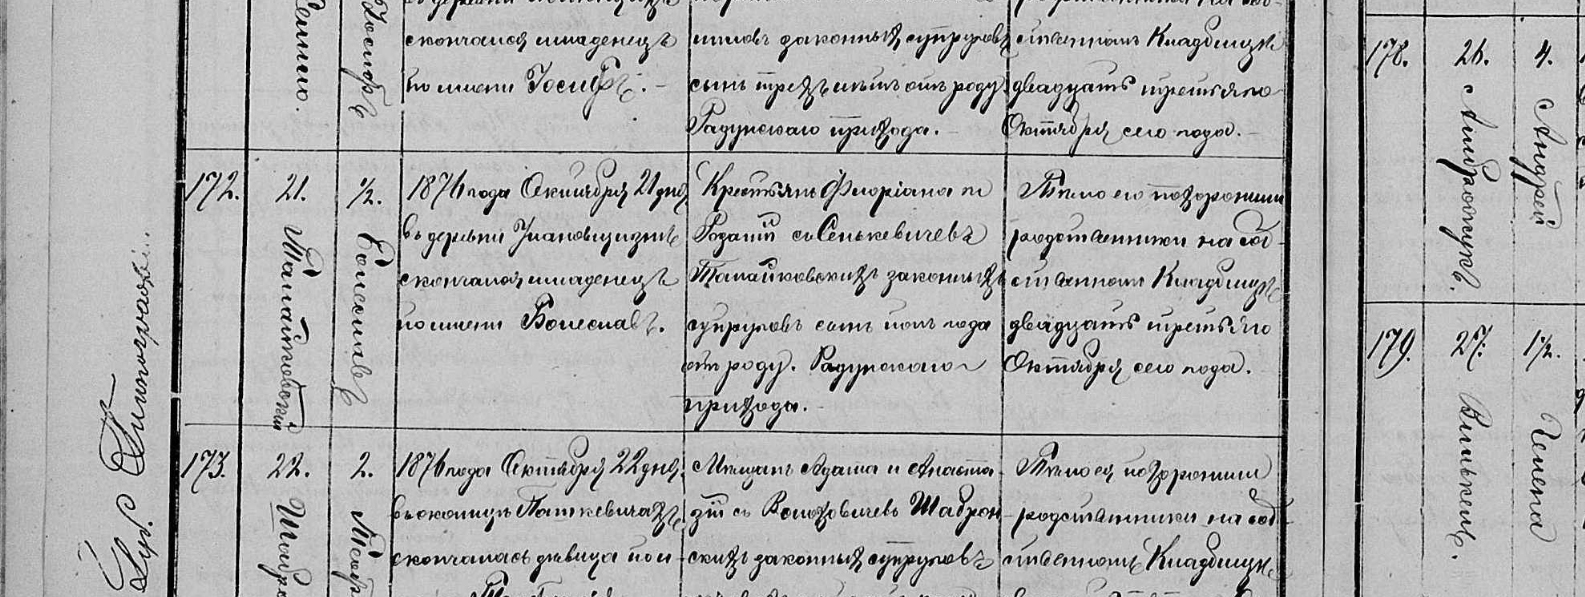 скончался младенецъ
по имени Іосифъ. -
сынъ трехъ лѣтъ отъ роду
Радунскаго прихода. -
ственномъ Кладбищѣ
двадцать третьяго
Октября сего года. -
172.
21.
Танайковскій
1/2.
Болеславъ
1876 года Октября 21 дня
въ деревнѣ
скончался младенецъ
по имени Болеславъ.
Крестьянъ Флоріана и
Розаліи съ Сенькевичевъ
Танайковскихъ законныхъ
супруговъ сынъ полъ года
отъ роду. Радунскаго
прихода. -
Тѣло его похоронили
родственники на соб-
ственномъ Кладбищѣ
двадцать третьяго
Октября сего года.
173.
22.
2.
1876 года Октября 22 дня
въ околицѣ Пашкевичахъ
скончалась дѣвица по и-
Мѣщанъ Адама и Анаста-
зіи съ Волоховичевъ Шаброн-
скихъ законныхъ супруговъ
Тѣло ея похоронили
родственники на соб-
ственномъ Кладбищѣ
178.
26.
Амброжукъ.
4.
Андрей
179.
27.
Вилькель.
1/2.
Гелена